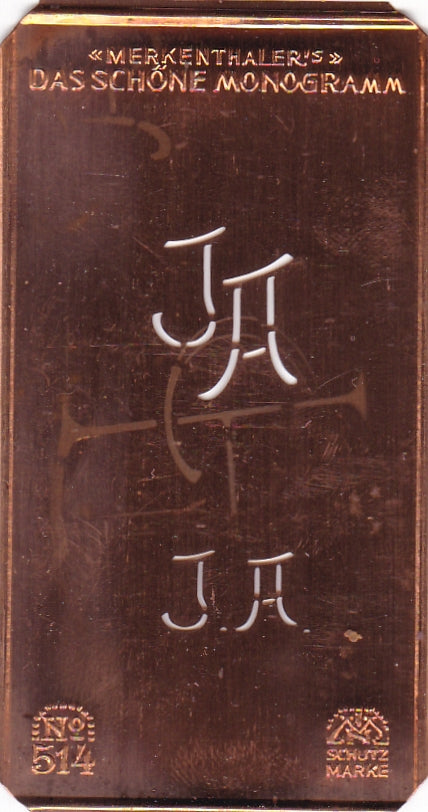 «MERKENTHALER'S»
DAS SCHÖNE MONOGRAMM
JA
J.A.
No
514
SCHUTZ
MARKE